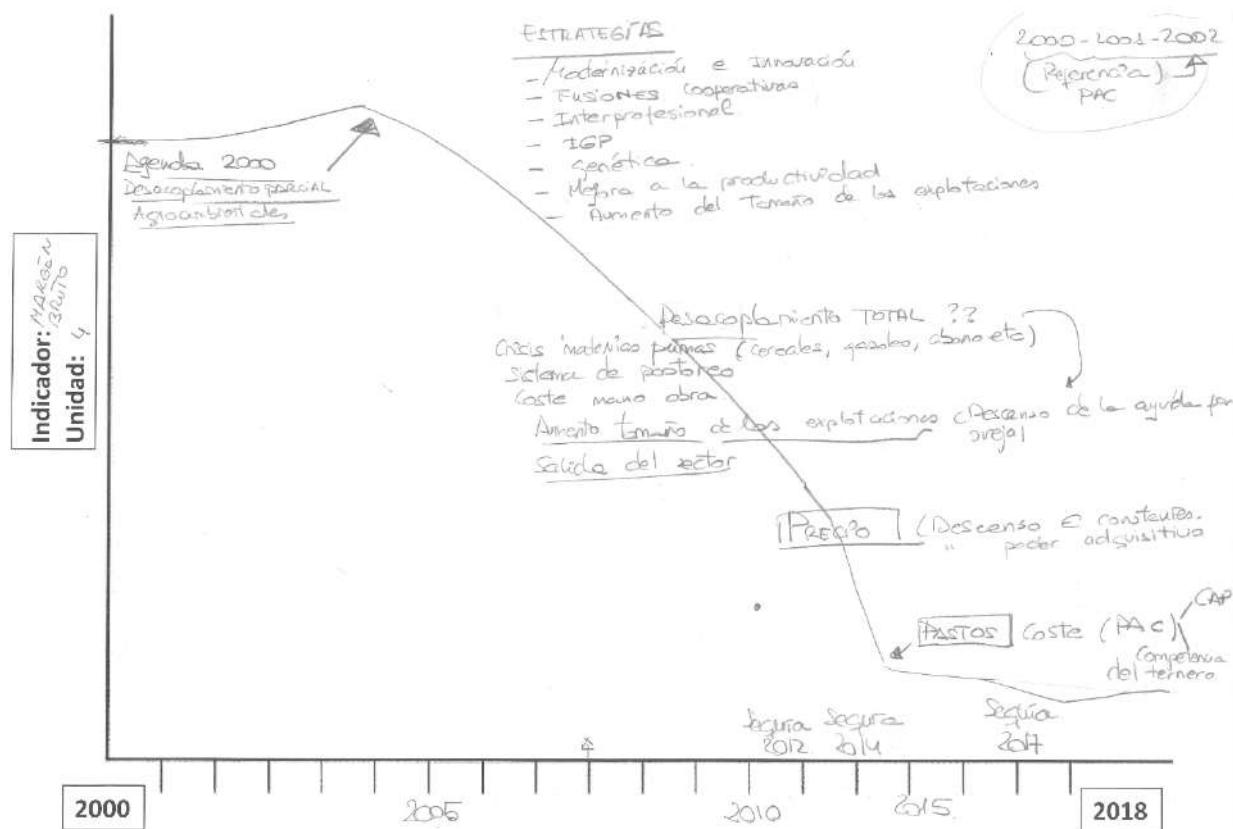 ESTRATEGÍAS
- Modernización e Innovación
- FUSIONES cooperativas
- Interprofesional
- IGP
- genética.
- Mejora a la productividad
- Aumento del Tamaño de las explotaciones
2000-2001-2002
(Referencia)
PAC
Agenda 2000
Desacoplamiento PARCIAL
Agroambientales
Indicador: MARGEN BRUTO
Unidad:
Desacoplamiento TOTAL ??
Crisis materias primas (cereales, gasoleo, abono etc)
Sistema de pastoreo
Coste mano obra
Aumento tamaño de las explotaciones (Descenso de la ayuda por oveja)
Salida del sector
PRECIO (Descenso € constantes.
" poder adquisitivo
PASTOS Coste (PAC)
CAP
Competencia
del ternero
Sequía
2012
2014
Sequía
2017
2000
2005
2010
2015
2018